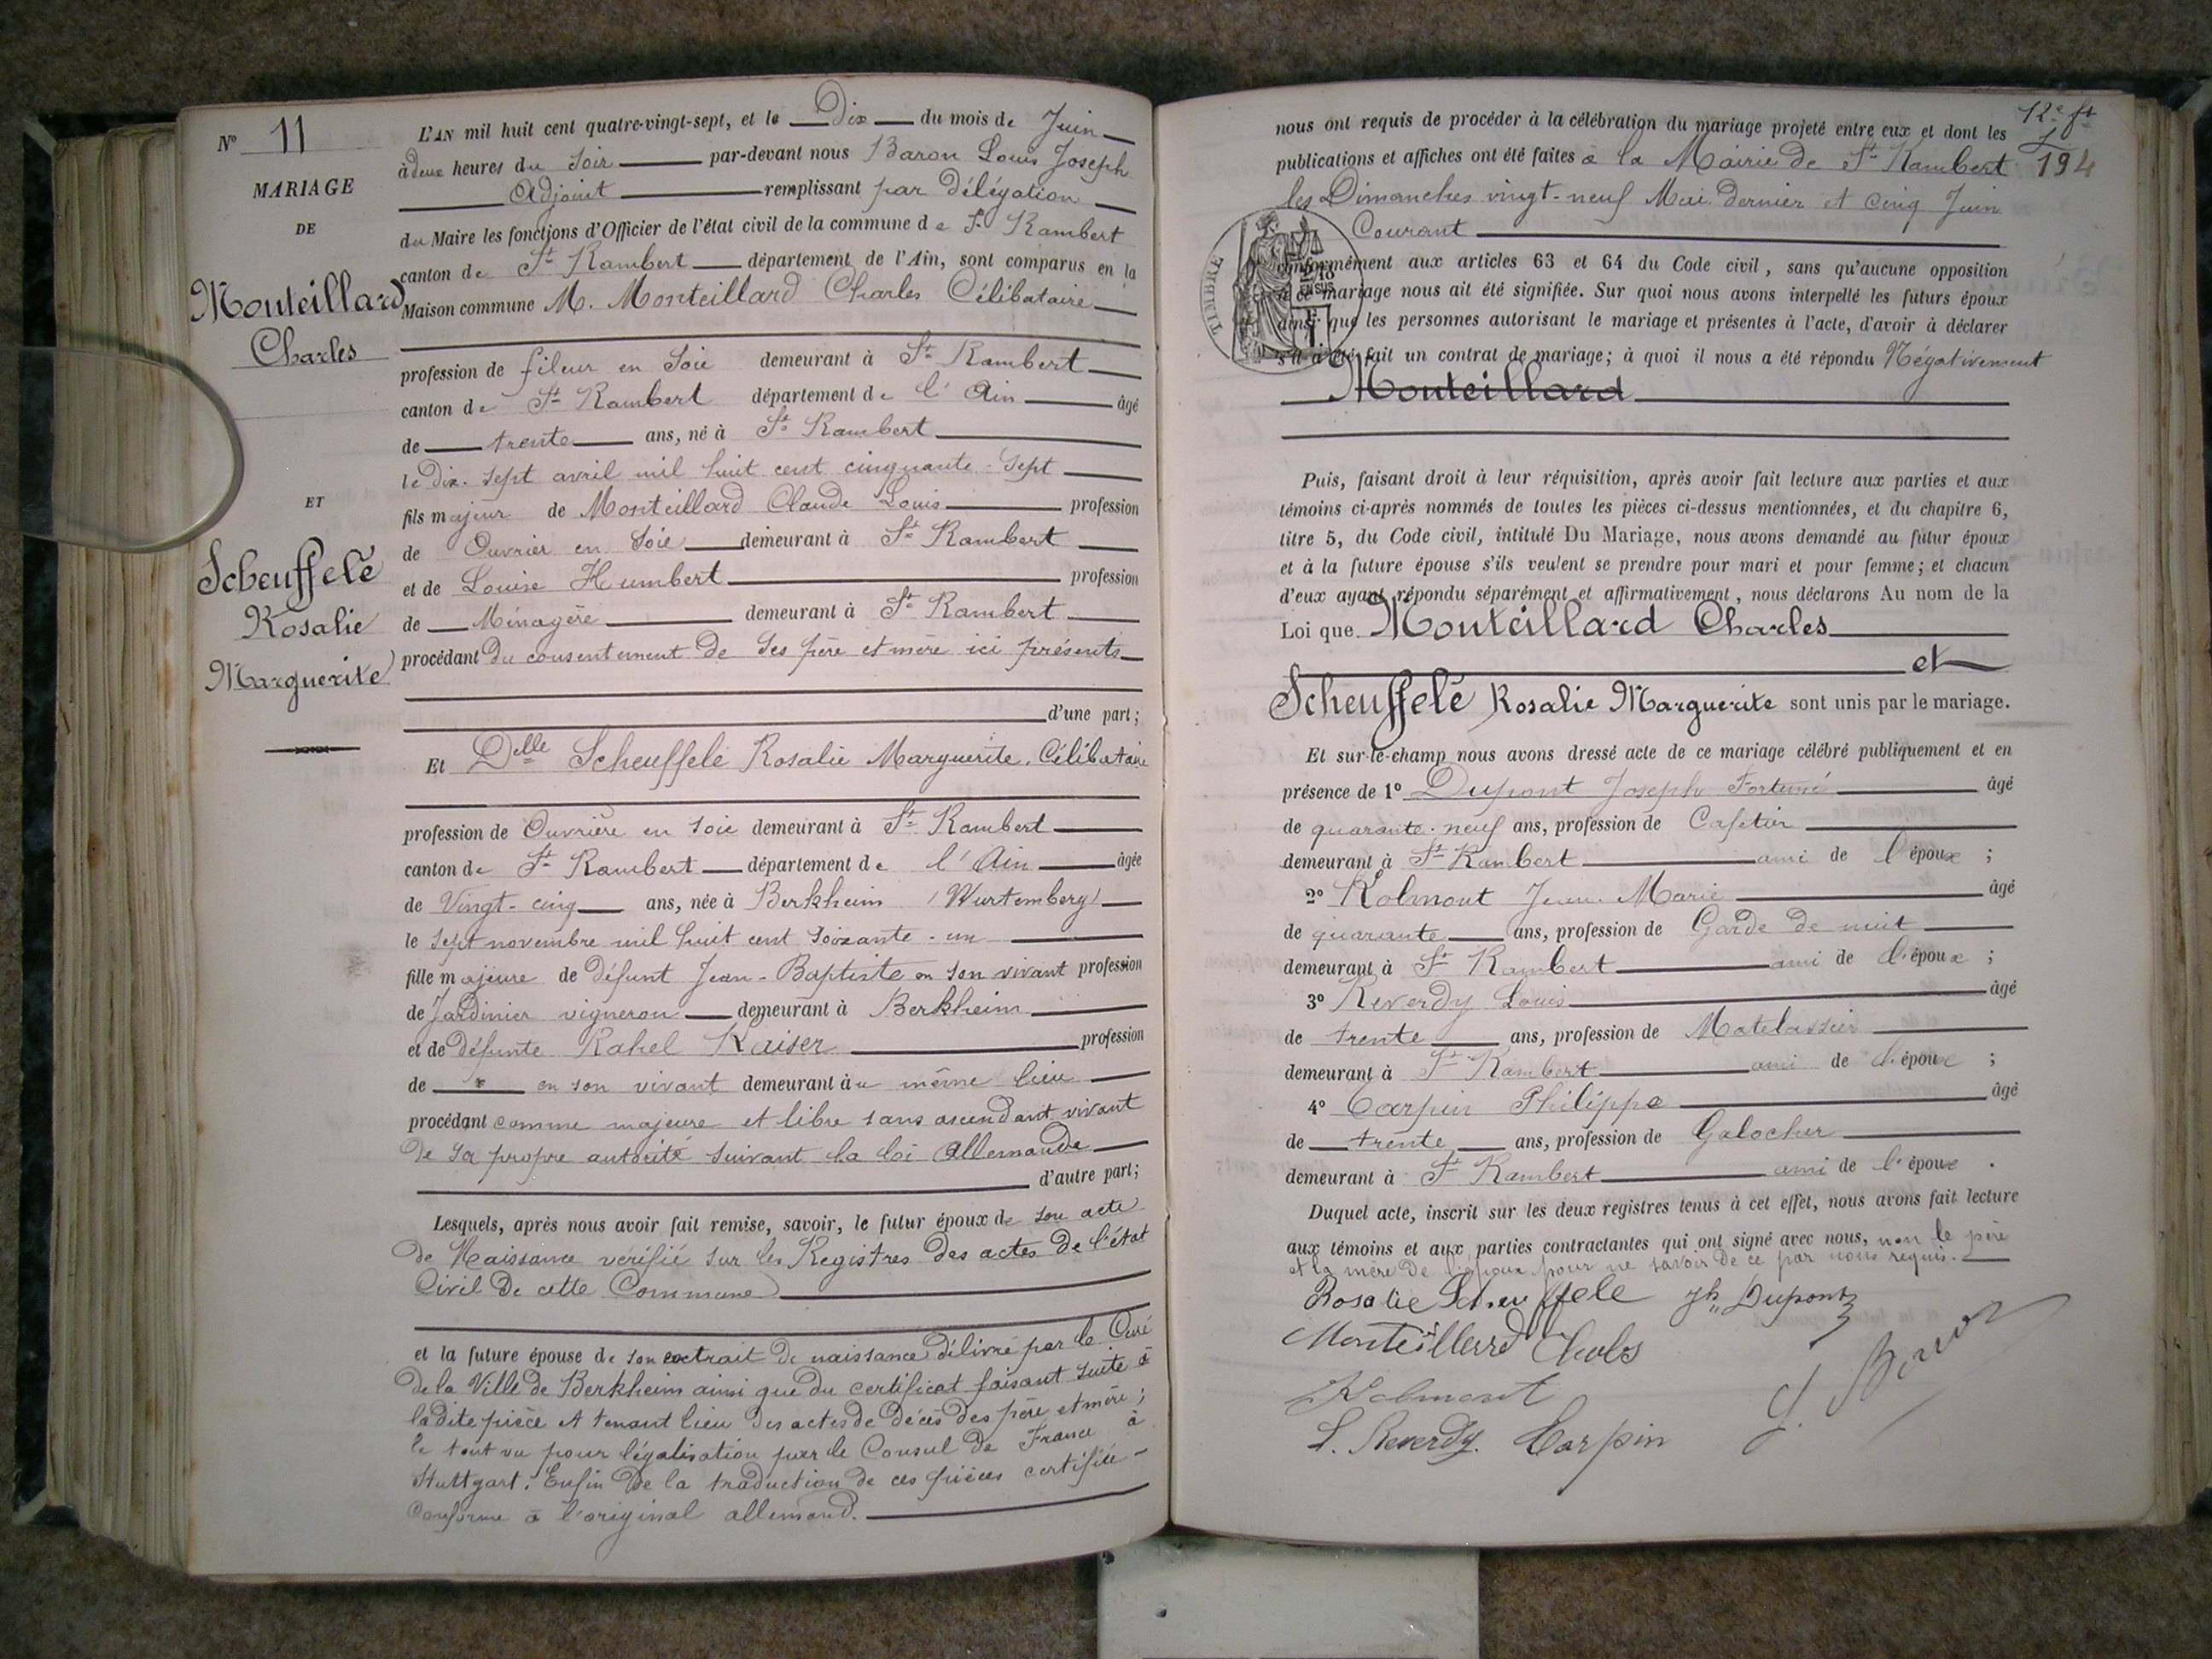 Nº 11
MARIAGE
DE
Monteillard
Charles
ET
Scheuffelé
Rosalie
Marguerite
L'AN mil huit cent quatre-vingt-sept, et le Dix du mois de Juin
à deux heures du soir par-devant nous Baron Louis Joseph
Adjoint remplissant par délégation
du Maire les fonctions d'Officier de l'état civil de la commune de St Rambert
canton de St Rambert département de l'Ain, sont comparus en la
Maison commune M. Monteillard Charles Célibataire
profession de fileur en soie demeurant à St Rambert
canton de St Rambert département de l'Ain âgé
de trente ans, né à St Rambert
le dix-sept avril mil huit cent cinquante-sept
fils majeur de Monteillard Claude Louis profession
de Ouvrier en soie demeurant à St Rambert
et de Louise Humbert profession
de Ménagère demeurant à St Rambert
procédant du consentement de ses père et mère ici présents
d'une part;
Et Delle Scheuffelé Rosalie Marguerite. Célibataire
profession de Ouvrière en soie demeurant à St Rambert
canton de St Rambert département de l'Ain âgée
de Vingt-cinq ans, née à Berkheim (Wurtemberg)
le sept novembre mil huit cent soixante-un
fille majeure de défunt Jean-Baptiste en son vivant profession
de Jardinier vigneron demeurant à Berkheim
et de défunte Rahel Kaiser profession
de en son vivant demeurant au même lieu
procédant comme majeure et libre sans ascendant vivant
de sa propre autorité suivant la loi Allemande
d'autre part;
Lesquels, après nous avoir fait remise, savoir, le futur époux de son acte
de Naissance vérifié sur les Registres des actes de l'état
Civil de cette Commune
et la future épouse de son extrait de naissance délivré par le Curé
de la Ville de Berkheim ainsi que du certificat faisant suite à
ladite pièce et tenant lieu des actes de décès des père et mère;
le tout vu pour légalisation par le Consul de France à
Stuttgart. Enfin de la traduction de ces pièces certifiée
conforme à l'original allemand.
194
nous ont requis de procéder à la célébration du mariage projeté entre eux et dont les
publications et affiches ont été faites à la Mairie de St Rambert
les Dimanches vingt-neuf Mai dernier et cinq Juin
Courant
TIMBRE
conformément aux articles 63 et 64 du Code civil, sans qu'aucune opposition
à ce mariage nous ait été signifiée. Sur quoi nous avons interpellé les futurs époux
ainsi que les personnes autorisant le mariage et présentes à l'acte, d'avoir à déclarer
s'il a été fait un contrat de mariage; à quoi il nous a été répondu Négativement
Monteillard
Puis, faisant droit à leur réquisition, après avoir fait lecture aux parties et aux
témoins ci-après nommés de toutes les pièces ci-dessus mentionnées, et du chapitre 6,
titre 5, du Code civil, intitulé Du Mariage, nous avons demandé au futur époux
et à la future épouse s'ils veulent se prendre pour mari et pour femme; et chacun
d'eux ayant répondu séparément et affirmativement, nous déclarons Au nom de la
Loi que Monteillard Charles
et
Scheuffelé Rosalie Marguerite sont unis par le mariage.
Et sur-le-champ nous avons dressé acte de ce mariage célébré publiquement et en
présence de 1º Dupont Joseph Fortuné âgé
de quarante-neuf ans, profession de Cafetier
demeurant à St Rambert ami de l'époux;
2º Kolmont Jean-Marie âgé
de quarante ans, profession de Garde de nuit
demeurant à St Rambert ami de l'époux;
3º Reverdy Louis âgé
de trente ans, profession de Matelassier
demeurant à St Rambert ami de l'époux;
4º Carpin Philippe âgé
de trente ans, profession de Galocher
demeurant à St Rambert ami de l'époux.
Duquel acte, inscrit sur les deux registres tenus à cet effet, nous avons fait lecture
aux témoins et aux parties contractantes qui ont signé avec nous, non le père
et la mère de l'époux pour ne savoir de ce par nous requis.
Rosalie Scheuffele Jh Dupont
Monteillard Charles
Kolmont
L. Reverdy. Carpin